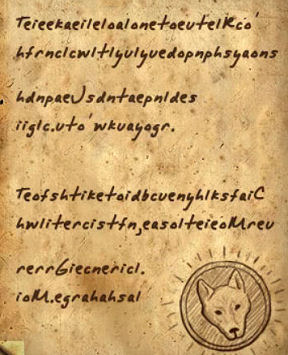 TeieekaeileloalonetoeutelRco'
hfrnclcwltlyulyuedopnphsyaons
hdnpaeJsdntaepnldes
iiglc.uto'wkuayogr.
TeofshtiketoidbcuenyhlksfaiC
hwlitercistfn,easolteieoMreu
rerrGiecnericl.
ioM.egrahahsal